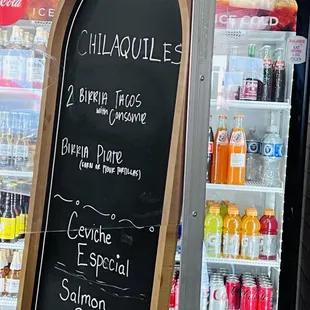 ICE
ICE COLD
CHILAQUILES
2 BIRRIA TACOS
with Consome
BIRRIA Plate
(CORN OR FLOUR TORTILLAS)
Ceviche
Especial
Salmon